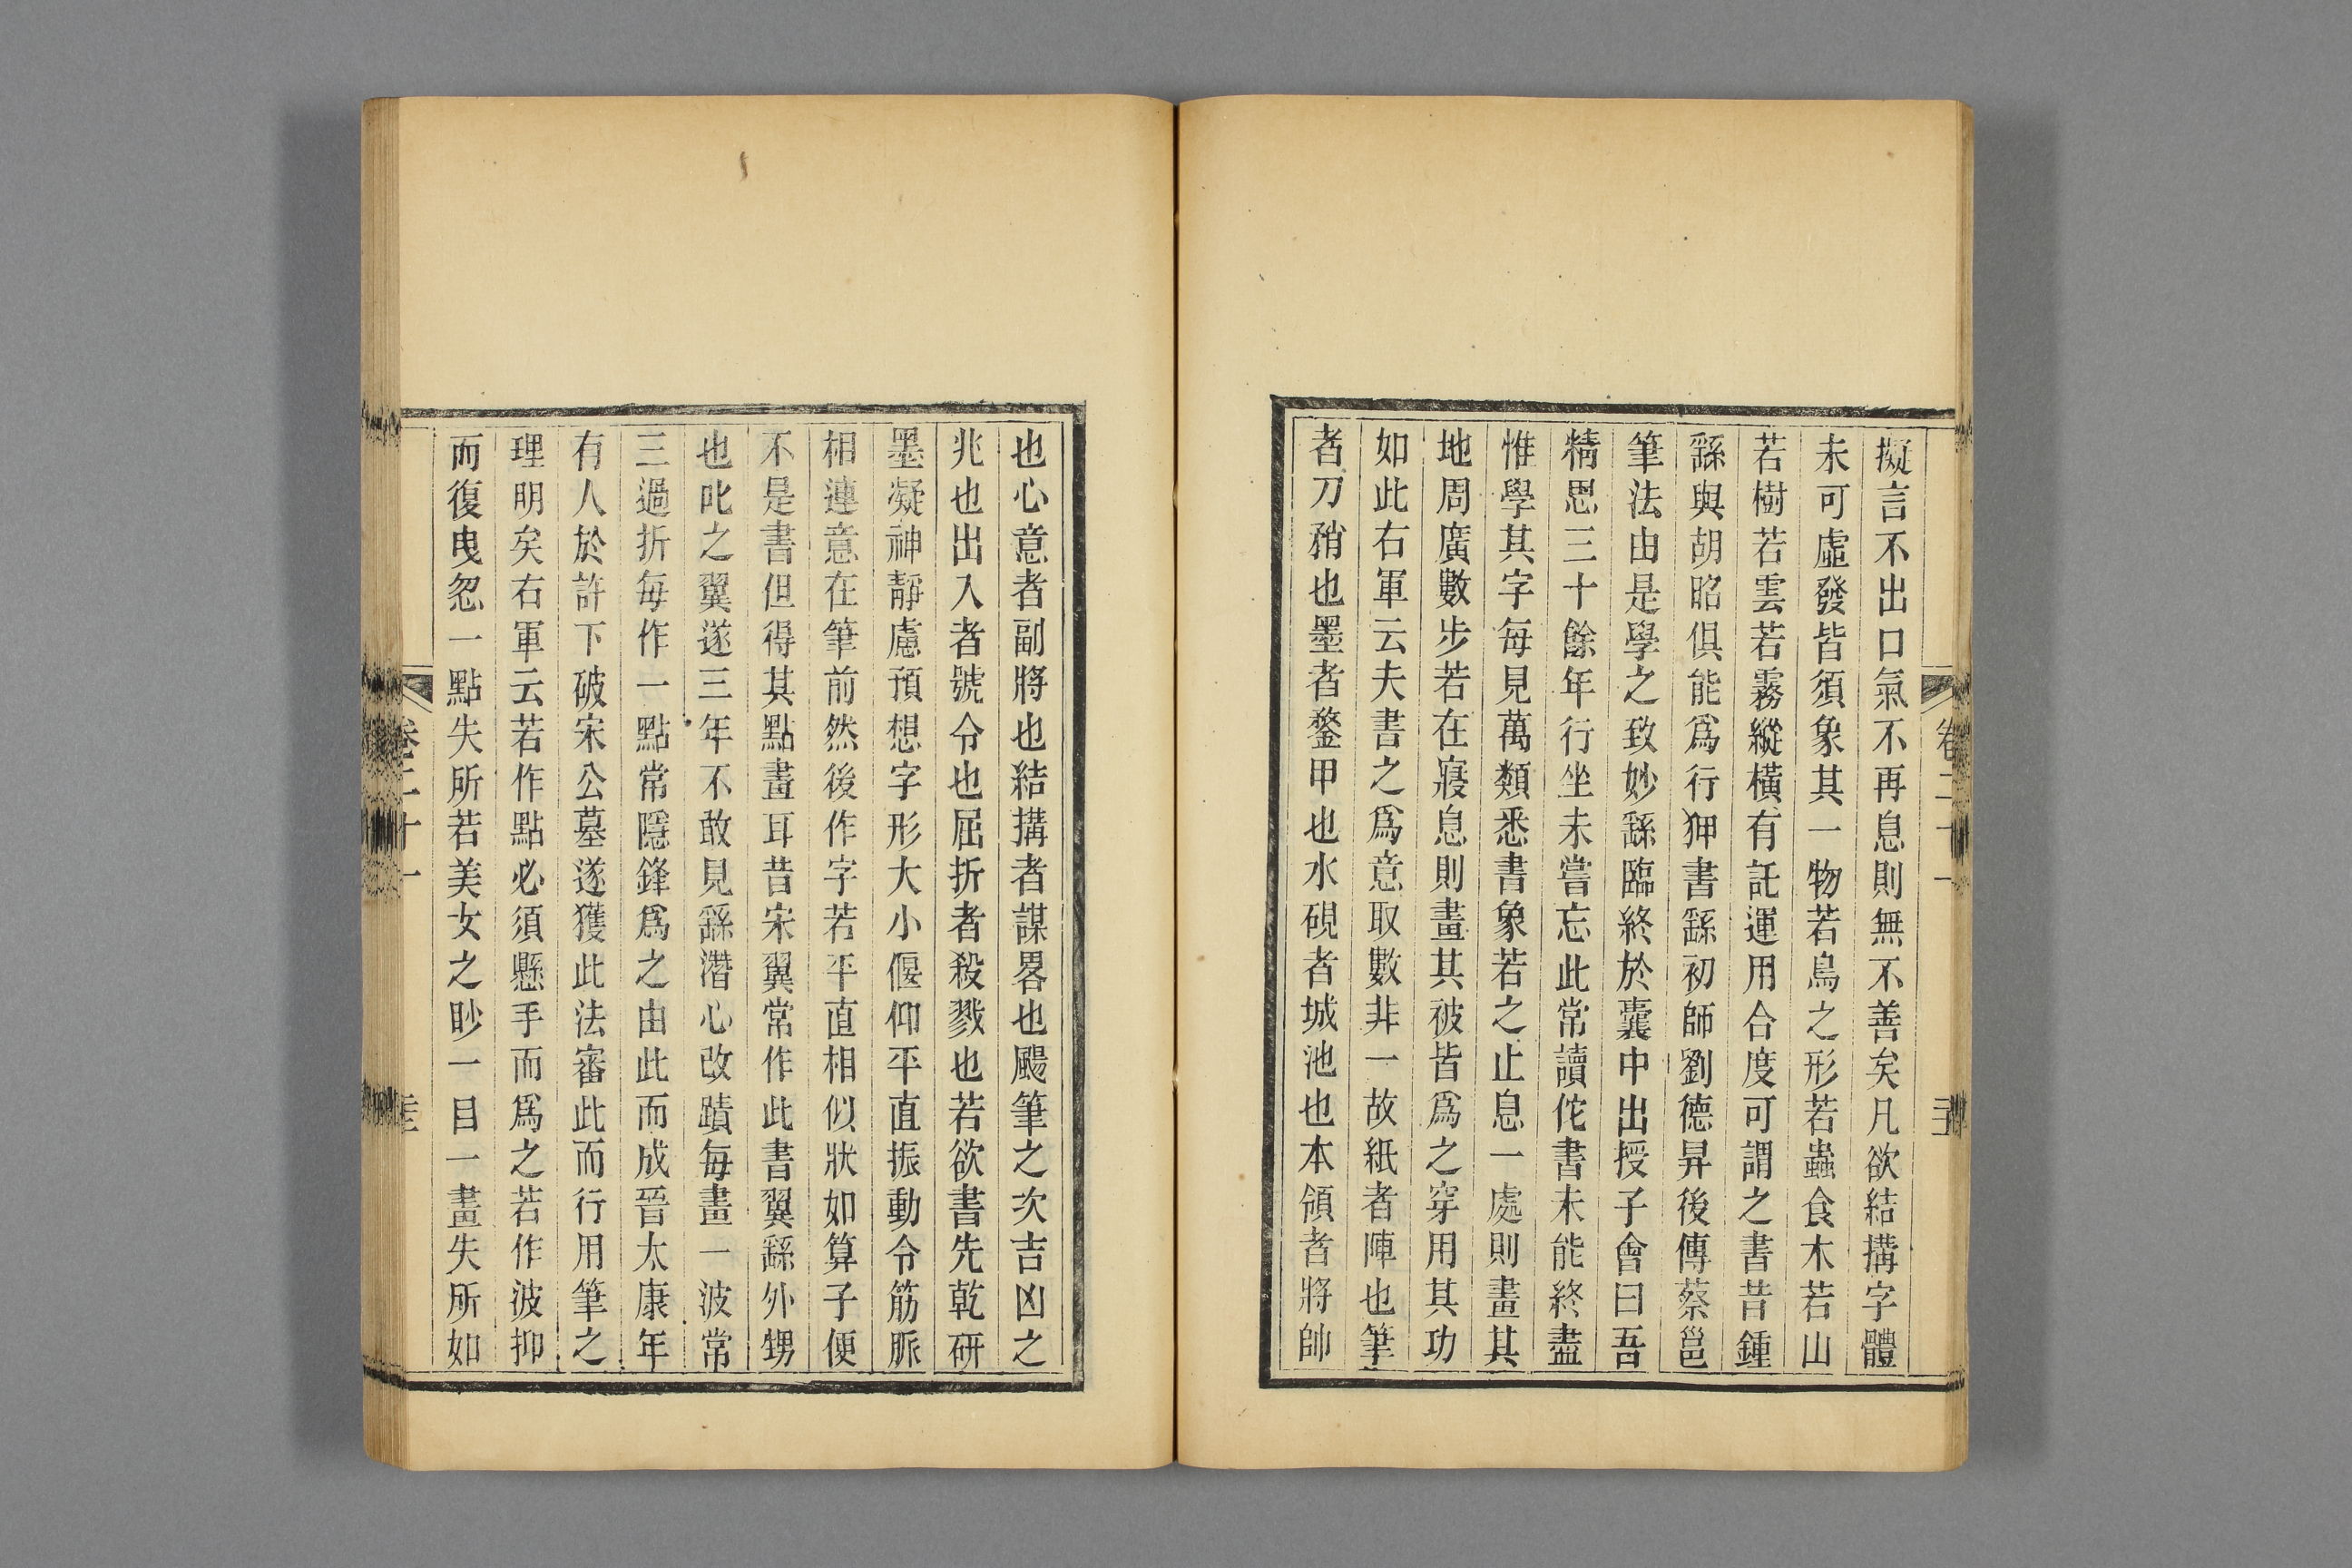 擬言不出口氣不再息則無不善矣凡欲結搆字體
未可虛發皆須象其一物若鳥之形若蟲食木若山
若樹若雲若霧縱橫有託運用合度可謂之書昔鍾
繇與胡昭俱能爲行狎書繇初師劉德昇後傳蔡邕
筆法由是學之致妙繇臨終於囊中出授子會曰吾
精思三十餘年行坐未嘗忘此常讀佗書未能終盡
惟學其字每見萬類悉書象若之止息一處則畫其
地周廣數步若在寢息則畫其被皆爲之穿用其功
如此右軍云夫書之爲意取數非一故紙者陣也筆
者刀矟也墨者鍪甲也水硯者城池也本領者將帥
也心意者副將也結搆者謀畧也颺筆之次吉凶之
兆也出入者號令也屈折者殺戮也若欲書先乾研
墨凝神靜慮預想字形大小偃仰平直振動令筋脈
相連意在筆前然後作字若平直相似狀如算子便
不是書但得其點畫耳昔宋翼常作此書翼繇外甥
也叱之翼遂三年不敢見繇潛心改蹟每畫一波常
三過折每作一點常隱鋒爲之由此而成晉太康年
有人於許下破宋公墓遂獲此法審此而行用筆之
理明矣右軍云若作點必須懸手而爲之若作波抑
而復曳忽一點失所若美女之眇一目一畫失所如
卷二十一